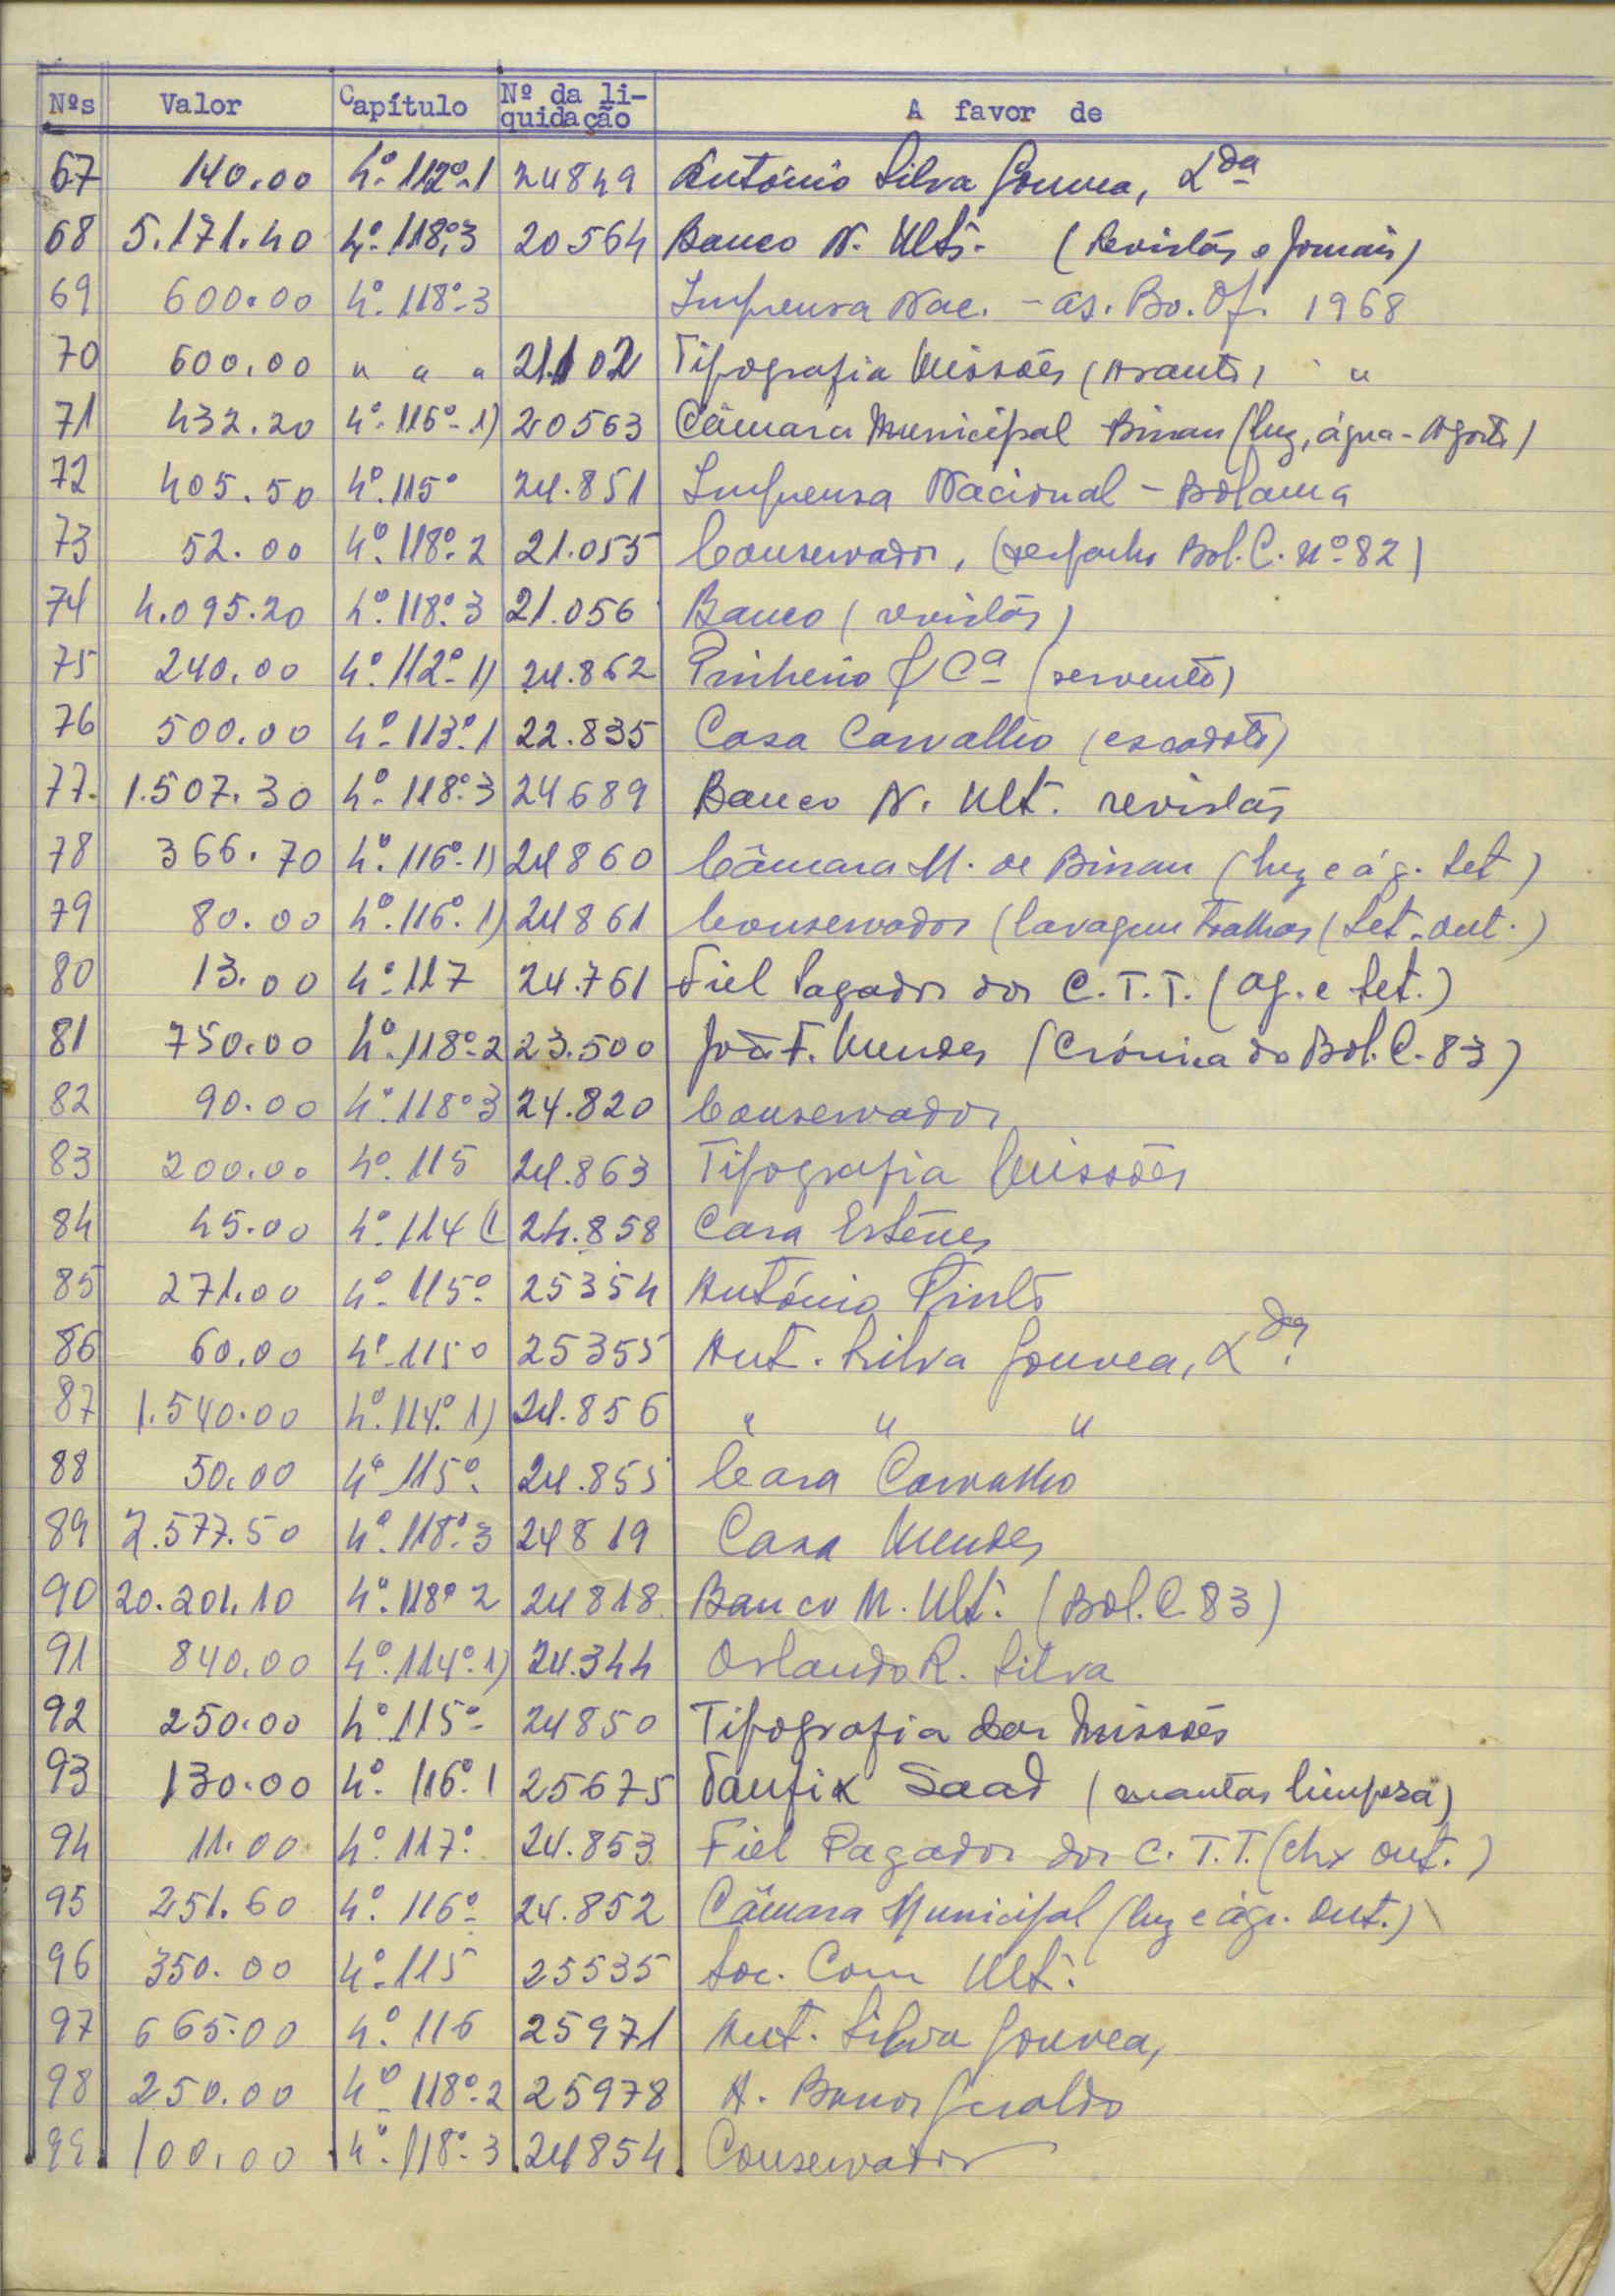 Nºs Valor Capítulo Nº da li-quidação A favor de
67 140.00 4º.112º.1 24849 António Silva Gouvea, Lda
68 5.171.40 4º.118º.3 20564 Banco N. Ultº. (Revistas e Jornais)
69 600.00 4º.118º.3 Imprensa Nac. - as. Bo. Of. 1968
70 600.00 " " " 21.102 Tipografia Missões (Arauto) "
71 432.20 4º.116º.1) 20563 Câmara Municipal Bissau (luz, água - Agosto)
72 405.50 4º.115º 24.851 Imprensa Nacional - Bolama
73 52.00 4º.118º.2 21.055 Conservador, (despacho Bol. C. nº 82)
74 4.095.20 4º.118º.3 21.056 Banco (revistas)
75 240.00 4º.112º.1) 24.862 Pinheiro & Cª (servente)
76 500.00 4º.113º.1 22.835 Casa Carvalho (escadote)
77. 1.507.30 4º.118º.3 24689 Banco N. Ult. revistas
78 366.70 4º.116º.1) 24860 Câmara M. de Bissau (luz e ág. Set)
79 80.00 4º.116º.1) 24861 Conservador (lavagem toalhas (Set. Out.)
80 13.00 4º.117 24.761 Fiel Pagador dos C.T.T. (ag. e Set.)
81 750.00 4º.118º.2 23.500 João F. Mendes (Crónica do Bol. C. 83)
82 90.00 4º.118º.3 24.820 Conservador
83 200.00 4º.115 24.863 Tipografia Missões
84 45.00 4º.114 (1 24.858 Casa Esteves
85 271.00 4º.115º 25354 António Pinto
86 60.00 4º.115º 25355 Ant. Silva Gouvea, Lda.
87 1.540.00 4º.114º.1) 24.856 " " "
88 50.00 4º.115º. 24.855 Casa Carvalho
89 2.577.50 4º.118º.3 24819 Casa Mendes
90 20.201.10 4º.118º.2 24818 Banco N. Ult. (Bol. C. 83)
91 840.00 4º.114º.1) 24.344 Orlando R. Silva
92 250.00 4º.115º 24850 Tipografia das Missões
93 130.00 4º.116º.1 25675 Taufik Saad (mantas limpeza)
94 11.00 4º.117º. 24.853 Fiel Pagador dos C.T.T. (Out.)
95 251.60 4º.116º 24.852 Câmara Municipal (luz e ág. Out.)
96 350.00 4º.115 25535 Soc. Com Ult.
97 665.00 4º.116 25971 Ant. Silva Gouvea,
98 250.00 4º.118º.2 25978 A. Geraldo
99 100.00 4º.118º.3 24854 Conservador